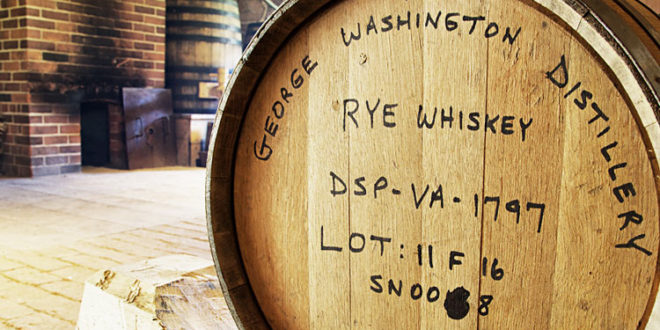 GEORGE WASHINGTON DISTILLERY
RYE WHISKEY
DSP-VA-1797
LOT: 11 F 16